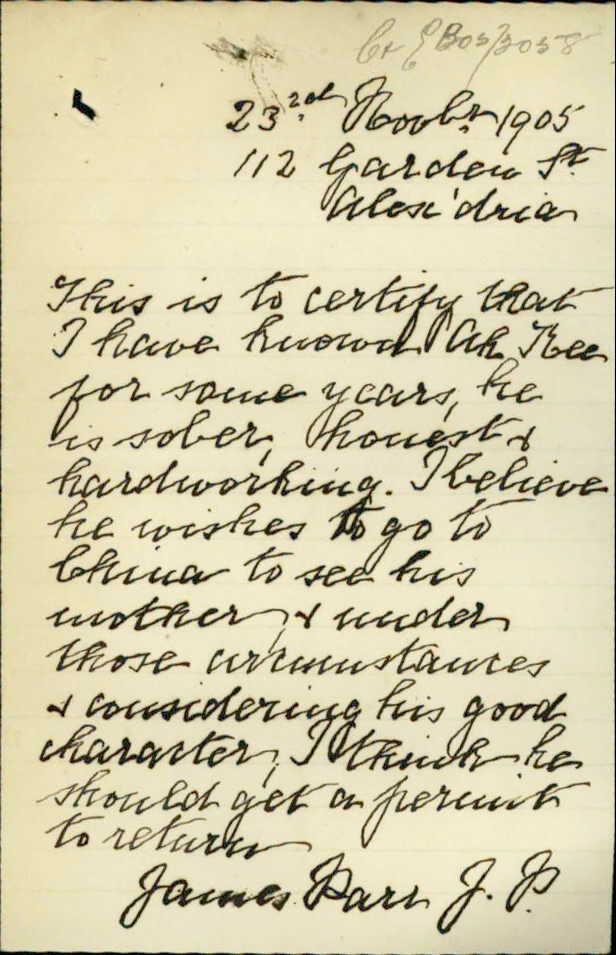 E B05/3058
23.2d Novbr. 1905
112 Garden St.
Alex'dria
This is to certify that
I have known Ah Kee
for some years, he
is sober, honest &
hardworking. I believe
he wishes to go to
China to see his
mother, & under
those circumstances
& considering his good
character, I think he
should get a permit
to return
James Parr J. P.